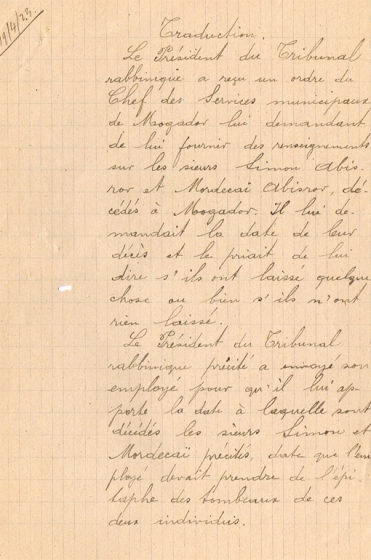 19/4/23.
Traduction.
Le Président du Tribunal
rabbinique a reçu un ordre du
Chef des Services municipaux
de Mogador lui demandant
de lui fournir des renseignements
sur les sieurs Simon Abis-
ror et Mordecaï Abisror, dé-
cédés à Mogador. Il lui de-
mandait la date de leur
décès et le priait de lui
dire s'ils ont laissé quelque
chose ou bien s'ils n'ont
rien laissé.
Le Président du Tribunal
rabbinique précité a envoyé son
employé pour qu'il lui ap-
porte la date à laquelle sont
décédés les sieurs Simon et
Mordecaï précités, date que l'em
ployé devait prendre de l'épi-
taphe des tombeaux de ces
deux individus.